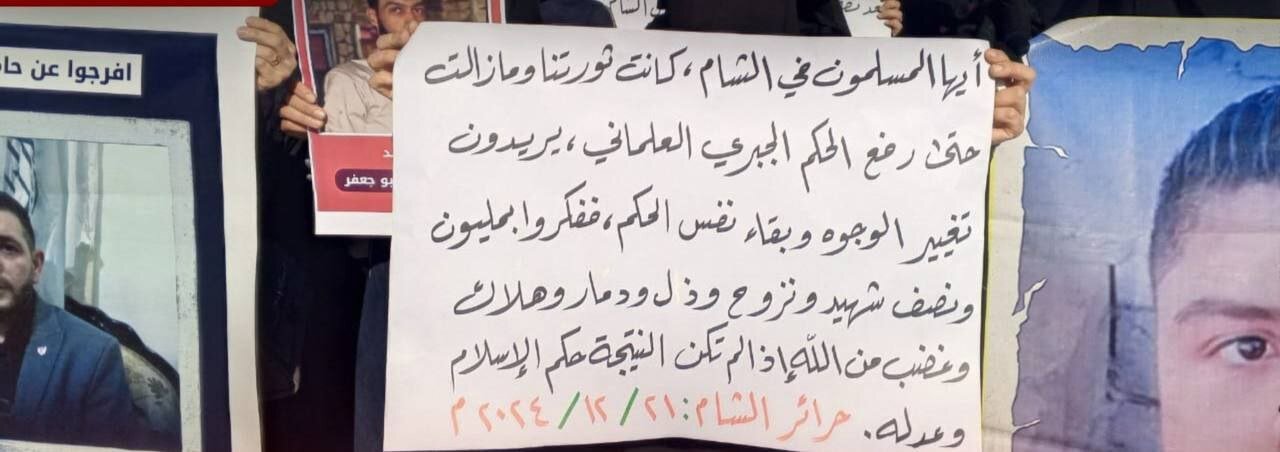 أيها المسلمون في الشام، كانت ثورتنا ومازالت
حتى رفع الحكم الجبري العلماني، يريدون
تغيير الوجوه وبقاء نفس الحكم، ففكروا بمليون
ونصف شهيد ونزوح وذل ودمار وهلاك
وغضب من الله إذا لم تكن النتيجة حكم الإسلام
وعدله. حرائر الشام: ٢١/١٢/٢٠٢٤ م
افرجوا عن
بو جعفر
الشام